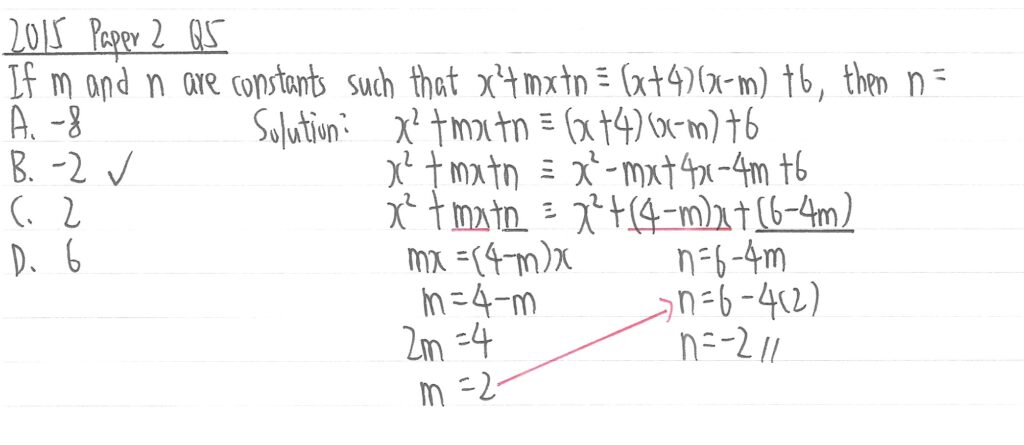 2015 Paper 2 Q5
If m and n are constants such that x²+mx+n ≡ (x+4)(x-m) +6, then n =
A. -8 Solution: x² +mx+n ≡ (x+4)(x-m)+6
B. -2 ✓ x² +mx+n ≡ x²-mx+4x-4m+6
C. 2 x² +mx+n ≡ x²+(4-m)x+(6-4m)
D. 6 mx =(4-m)x n=6-4m
m=4-m n=6-4(2)
2m =4 n=-2//
m =2